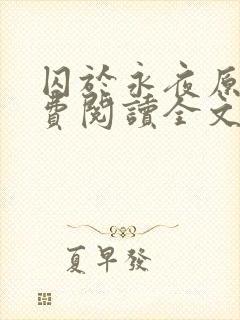 囚於永夜原
費閱讀全文
夏早發